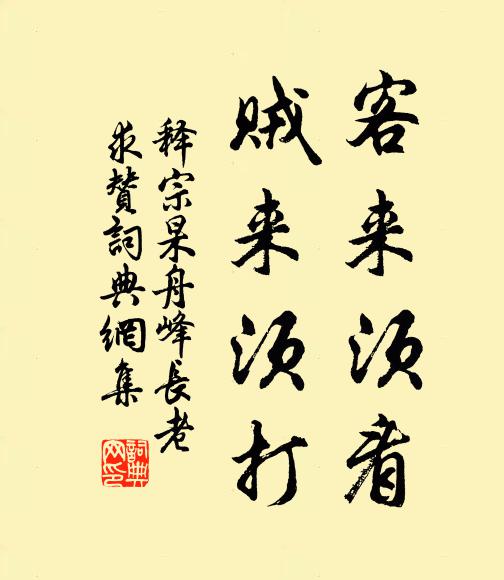 客来须看
贼来须打
释宗杲舟峰長老
求赞詞典網集
詞典
网印